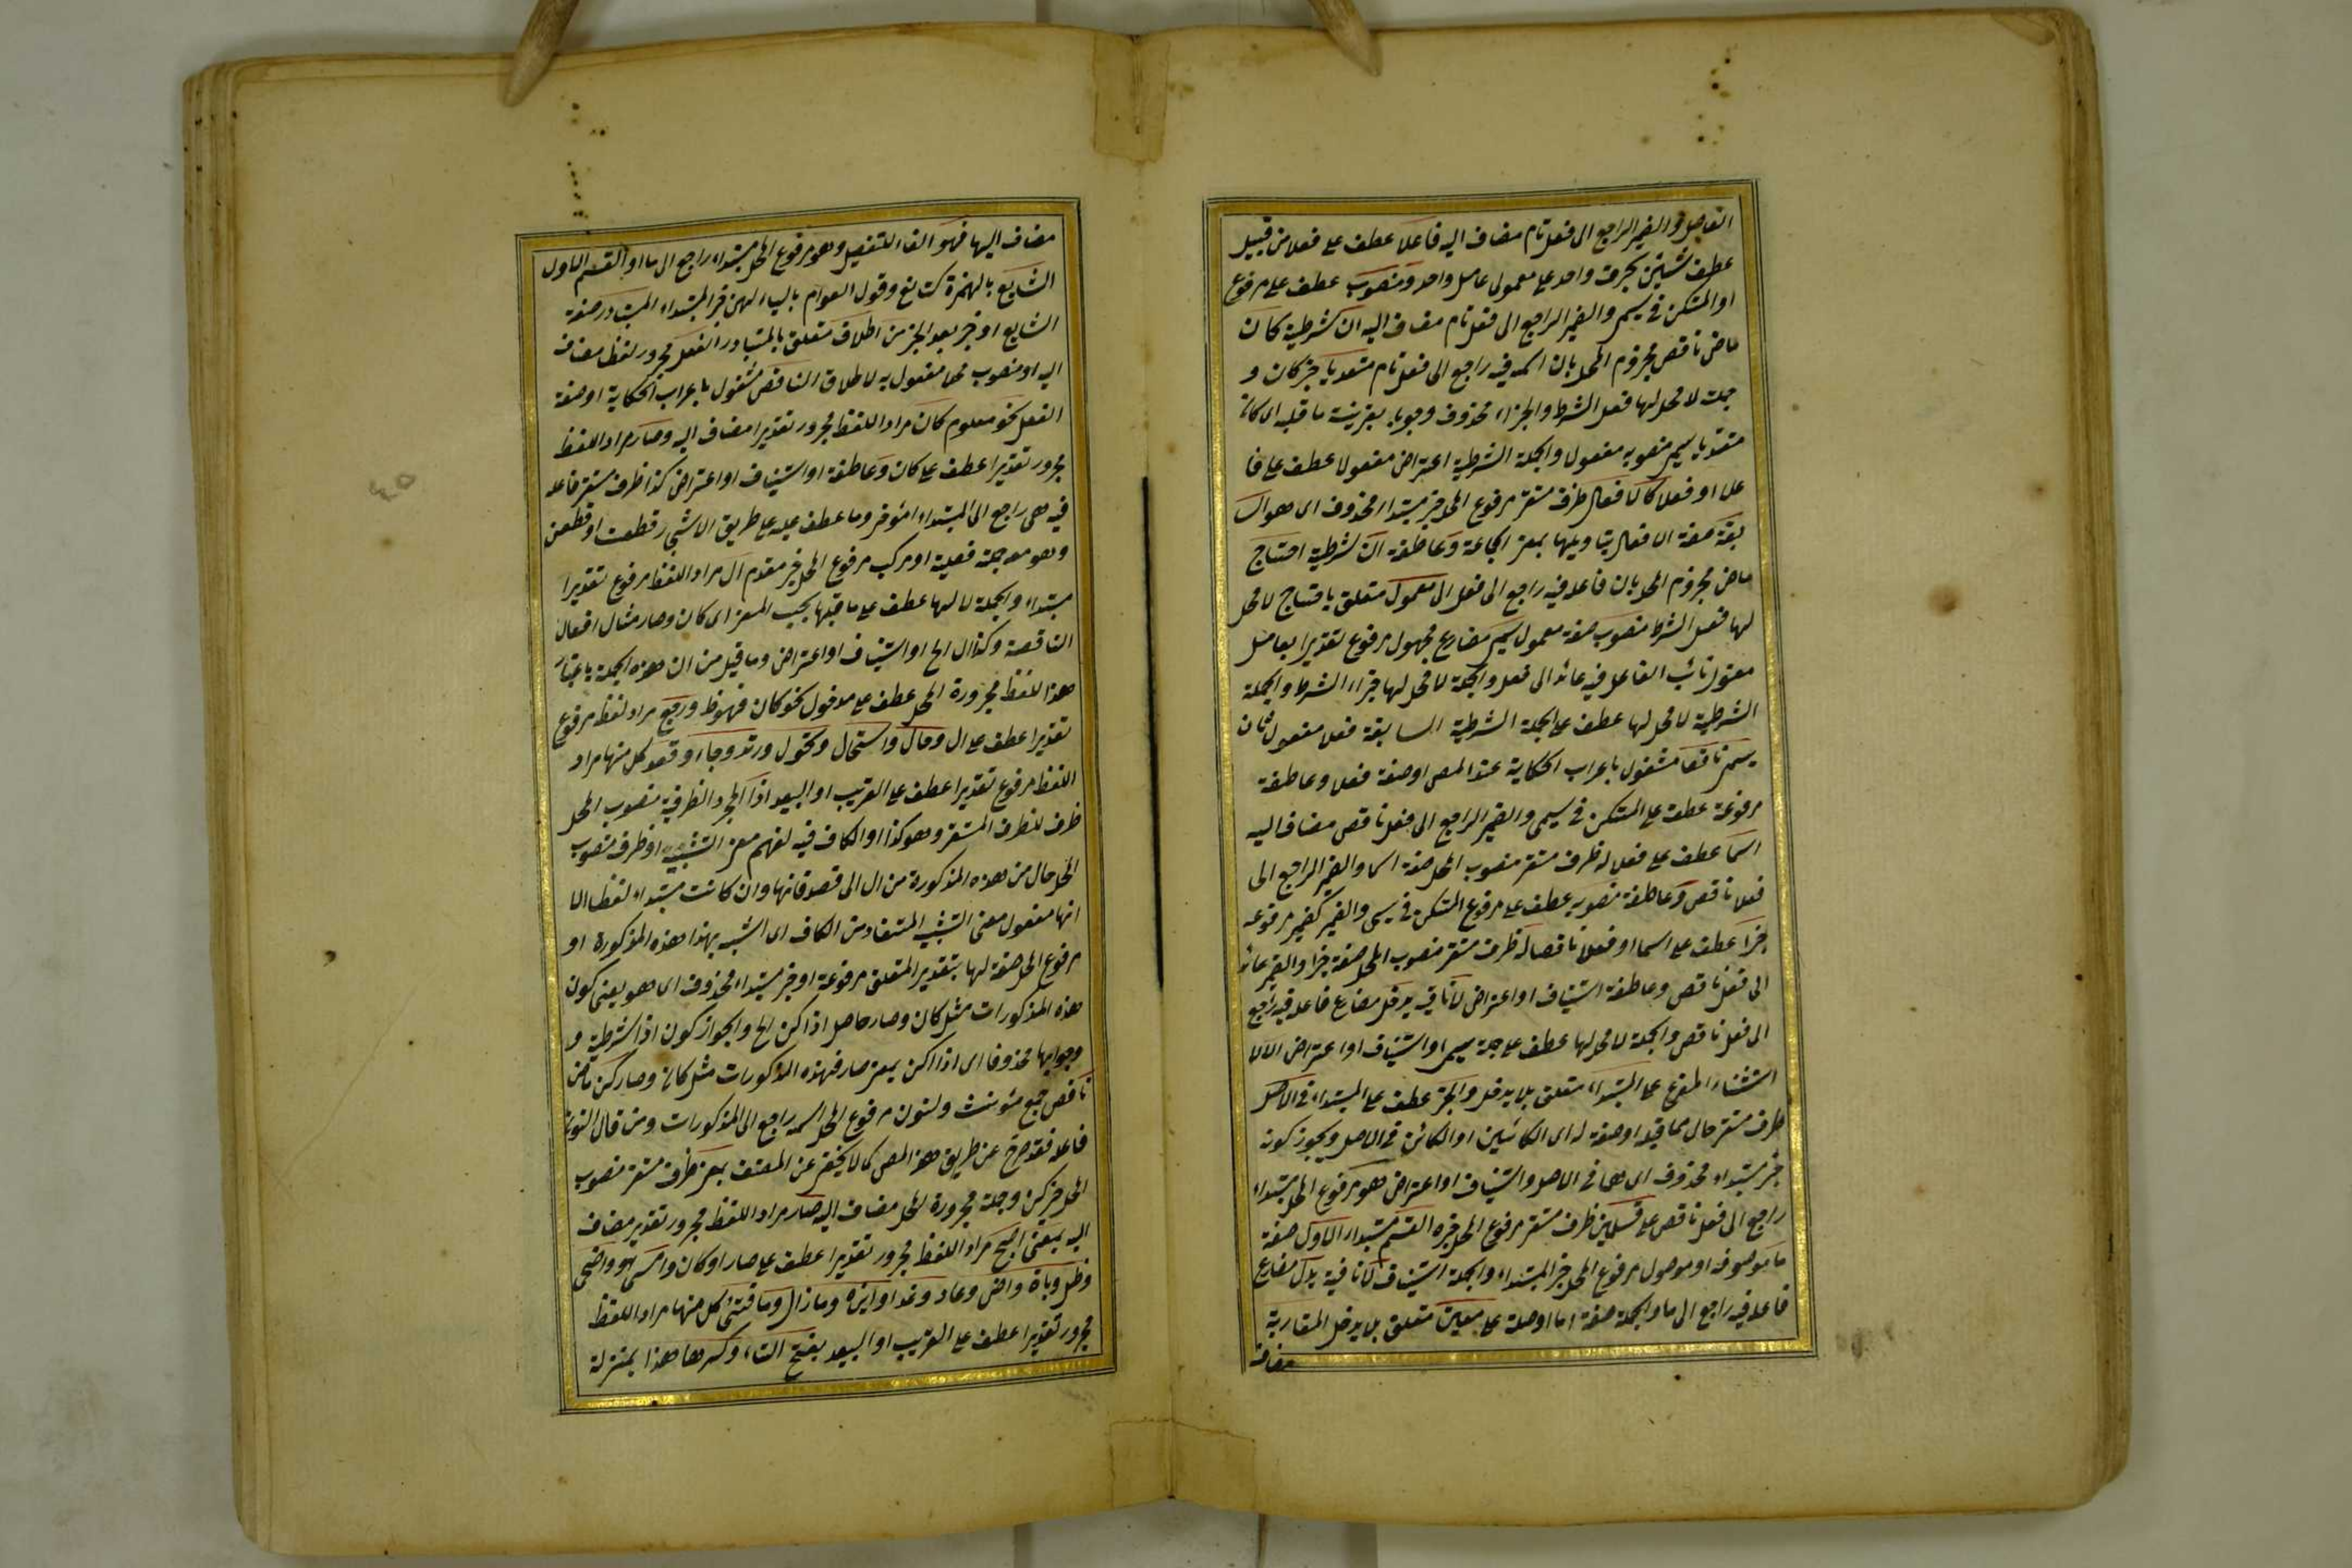 الفاصل والضمير الراجع الى فعل تام مضاف اليه فاعلا عطف على فعلا من قبيل
عطف شيئين بحرف واحد على معمولى عامل واحد ومنصوب عطف على مرفوع
او المتمكن فى يسمى والضمير الراجع الى فعل تام مضاف اليه ان شرطية كان
ماض ناقص مجزوم المحل بان اسمه فيه راجع الى فعل تام متعديا خبر كان و
جملة لا محل لها فعل الشرط والجزاء محذوف وجوبا بقرينة ما قبله اى كان
متعديا يسمى منصوبه مفعول والجملة الشرطية اعتراض مفعولا عطف على فا
علا او فعلا كالافعال ظرف مستقر مرفوع المحل خبر مبتداء محذوف اى هو السا
بقة صفة الافعال بتاويلها بمعنى الجماعة وعاطفة ان شرطية احتاج
ماض مجزوم المحل بان فاعله فيه راجع الى فعل الى معمول متعلق باحتاج لا محل
لها فعل الشرط منصوب صفة معمول يسم مضارع مجهول مرفوع تقديرا بعامل
معنوى نائب الفاعل فيه عائد الى فعل والجملة لا محل لها جزاء الشرط والجملة
الشرطية لا محل لها عطف على الجملة الشرطية السابقة فعلا مفعول ثان
يسمى ناقصا مشغول باعراب الحكاية عند المص او صفة فعلا وعاطفة
مرفوعه عطف على المتمكن فى يسمى والضمير الراجع الى فعل ناقص مضاف اليه
اسما عطف على فعلا له ظرف مستقر منصوب المحل صفة اسما والضمير الراجع الى
فعلا ناقص وعاطفة منصوبه عطف على مرفوع المتمكن فى يسمى والضمير كضمير مرفوعه
خبرا عطف على اسما او فعلا ناقصا له ظرف مستقر منصوب المحل صفة خبرا والضمير عائد
الى فعل ناقص وعاطفة استيناف او اعتراض لا نافية يدخل مضارع فاعله فيه راجع
الى فعل ناقص والجملة لا محل لها عطف على جملة يسمى او استيناف او اعتراض الا لا
استثناء المفرغ على المبتداء متعلق بلا يدخل والخبر عطف على المبتداء فى الاصل
ظرف مستقر حال مما قبله او صفة له اى الكائنين او الكائن فى الاصل ويجوز كونه
خبر مبتداء محذوف اى هما فى الاصل واستيناف او اعتراض هو مرفوع المحل مبتداء
راجع الى فعل ناقص على قسمين ظرف مستقر مرفوع المحل خبره القسم مبتداء الاول صفة
ما موصوفة او موصول مرفوع المحل خبر المبتداء والجملة استيناف لا نافية يدل مضارع
فاعله فيه راجع الى ما والجملة صفة ما او صلة على معين متعلق بلا يدخل المقاربة
مضاف
مضاف اليها فهو الفاء للتفصيل وهو مرفوع المحل مبتداء راجع الى ما او القسم الاول
الشايع بالهمزة كتابع وقول العوام بالياء لحن خبر المبتداء المتبادر صفة
الشايع او خبر بعد الخبر من اطلاق متعلق بالمتبادر الفعل مجرور لفظا مضاف
اليه او منصوب محلا مفعول به لاطلاق الناقص مشغول باعراب الحكاية او صفة
الفعل نحو معلوم كان مراد اللفظ مجرور تقديرا مضاف اليه وصار مراد اللفظ
مجرور تقديرا عطف على كان وعاطفة او استيناف او اعتراض كذا ظرف مستقر فاعله
فيه هى راجع الى المبتداء المؤخر وما عطف عليه على طريق
وهو معه جملة فعلية او مركب مرفوع المحل خبر مقدم آل مراد اللفظ مرفوع تقديرا
مبتداء والجملة لا لها عطف على ما قبلها بحسب المعنى اى كان وصار مثال افعال
الناقصة وكذا ال الخ او استيناف او اعتراض وما قيل من ان هذه الجملة باعتبار
هذا اللفظ مجرورة المحل عطف على مدخول نحو كان فهو ورجع مراد لفظه مرفوع
تقديرا عطف على ال وحال واستحال وتحول وارتد وجاء وقعد كل منها مراد
اللفظ مرفوع تقديرا عطف على القريب او البعيد اذا لمجرد الظرفية منصوب المحل
ظرف للظرف المستقر وهو كذا او الكاف فيه لفهم معنى التشبيه او ظرف منصوب
المحل حال من هذه المذكورة من ال الى قعد فانها وان كانت مبتداء لفظا الا
انها مفعول معنى التشبيه المستفاد من الكاف اى اشبه بهذا هذه المذكورة او
مرفوع المحل صفة لها بتقدير المتعلق مرفوعة او خبر مبتداء محذوف اى هو يعنى كون
هذه المذكورات مثل كان وصار حاصل اذا كن الخ والجواز كون اذا شرطية و
وجوابها محذوفا اى اذا كن بمعنى صار فهذه المذكورات مثل كان وصار كن ماض
ناقص جمع مؤنث والنون مرفوع المحل اسمه راجع الى المذكورات ومن قال النون
فاعله فقد خرج عن طريق هذا المص كما لا يخفى عن المصنف بمعنى ظرف مستقر منصوب
المحل خبر كن وجملة مجرورة المحل مضاف اليه صار مراد اللفظ مجرور تقديرا مضاف
اليه بمعنى اصبح مراد اللفظ مجرور تقديرا عطف على صار او كان وامسى واضحى
وظل وبات واض وعاد وغدا وراح وما زال وما فتئ كل منها مراد اللفظ
مجرور تقديرا عطف على القريب او البعيد بفتح التاء وكسرها هذا بمنزلة